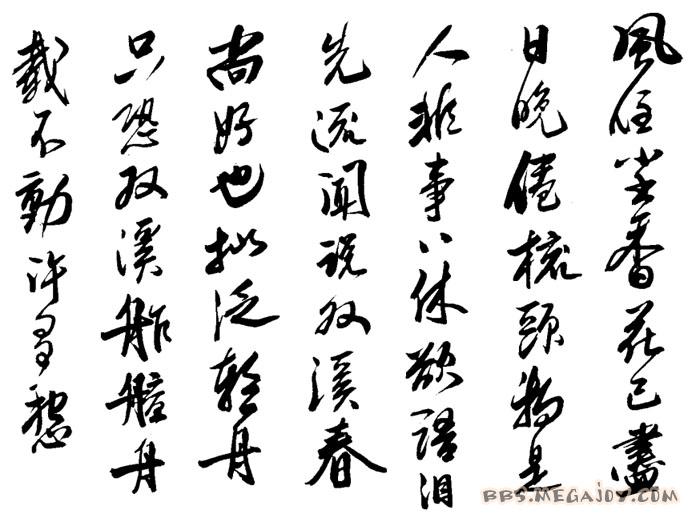 風住尘香花已盡
日晚倦梳頭物是
人非事々休欲語泪
先流聞說双溪春
尚好也拟泛輕舟
只恐双溪舴艋舟
載不動許多愁
BBS.MEGAJOY.COM